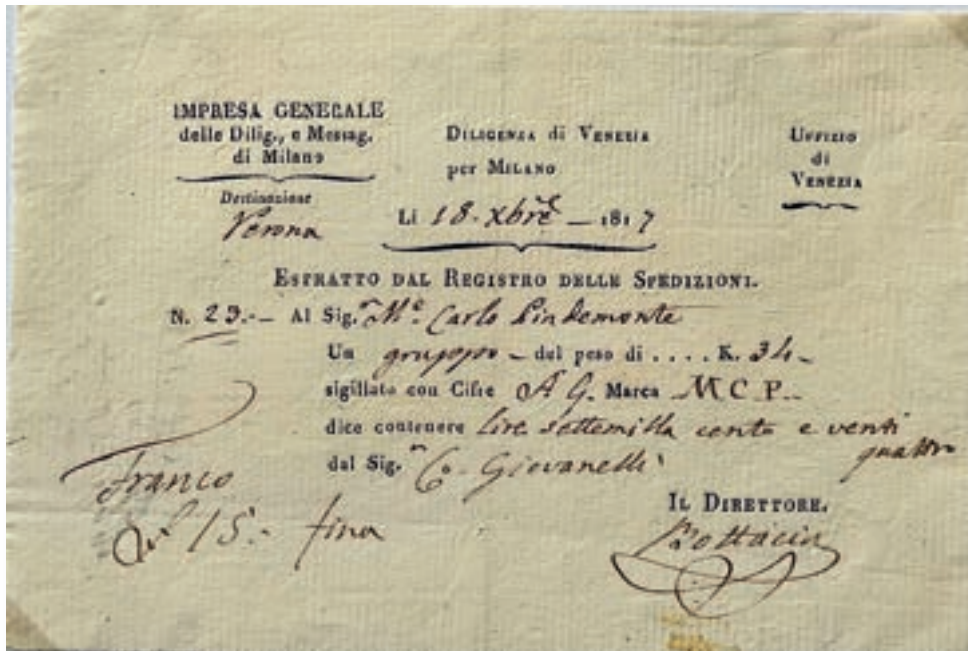 IMPRESA GENERALE
delle Dilig., e Messag.
di Milano
DILIGENZA di VENEZIA
per MILANO
UFFIZIO
di
VENEZIA
Destinazione
Verona
Li 18. Xbre _ 1817
ESTRATTO DAL REGISTRO DELLE SPEDIZIONI.
N. 23.- Al Sig.r Me. Carlo Pindemonte
Un gruppo - del peso di .... K. 34-
sigillato con Cifre A G. Marca M C P.
dice contenere lire settemilla cento e venti
quattro
dal Sig.r C. Giovanelli
Franco
15.- fina
IL DIRETTORE.
Bottacin